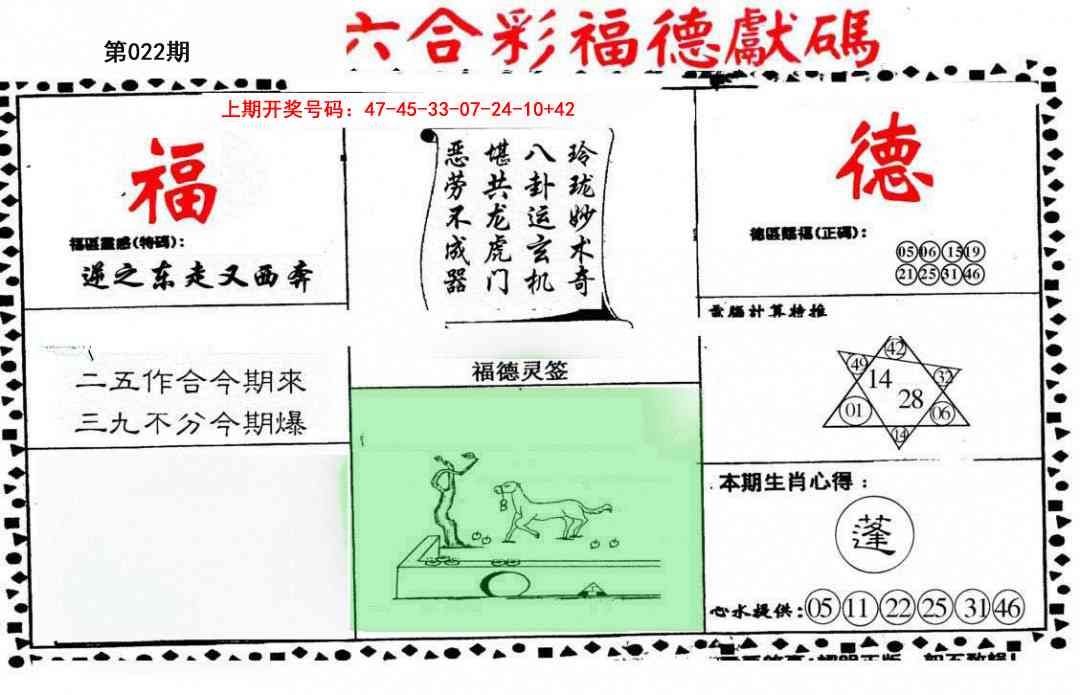 第022期
六合彩福德獻碼
上期开奖号码：47-45-33-07-24-10+42
福
福區靈感(特碼)：
逆之东走又西奔
二五作合今期來
三九不分今期爆
玲珑妙术奇
八卦运玄机
堪共龙虎门
恶劳不成器
福德灵签
德
德區賜福(正碼)：
05 06 15 19
21 25 31 46
電腦計算檢推
42
49 14 32
28
01 06
14
本期生肖心得：
蓬
心水提供：05 11 22 25 31 46